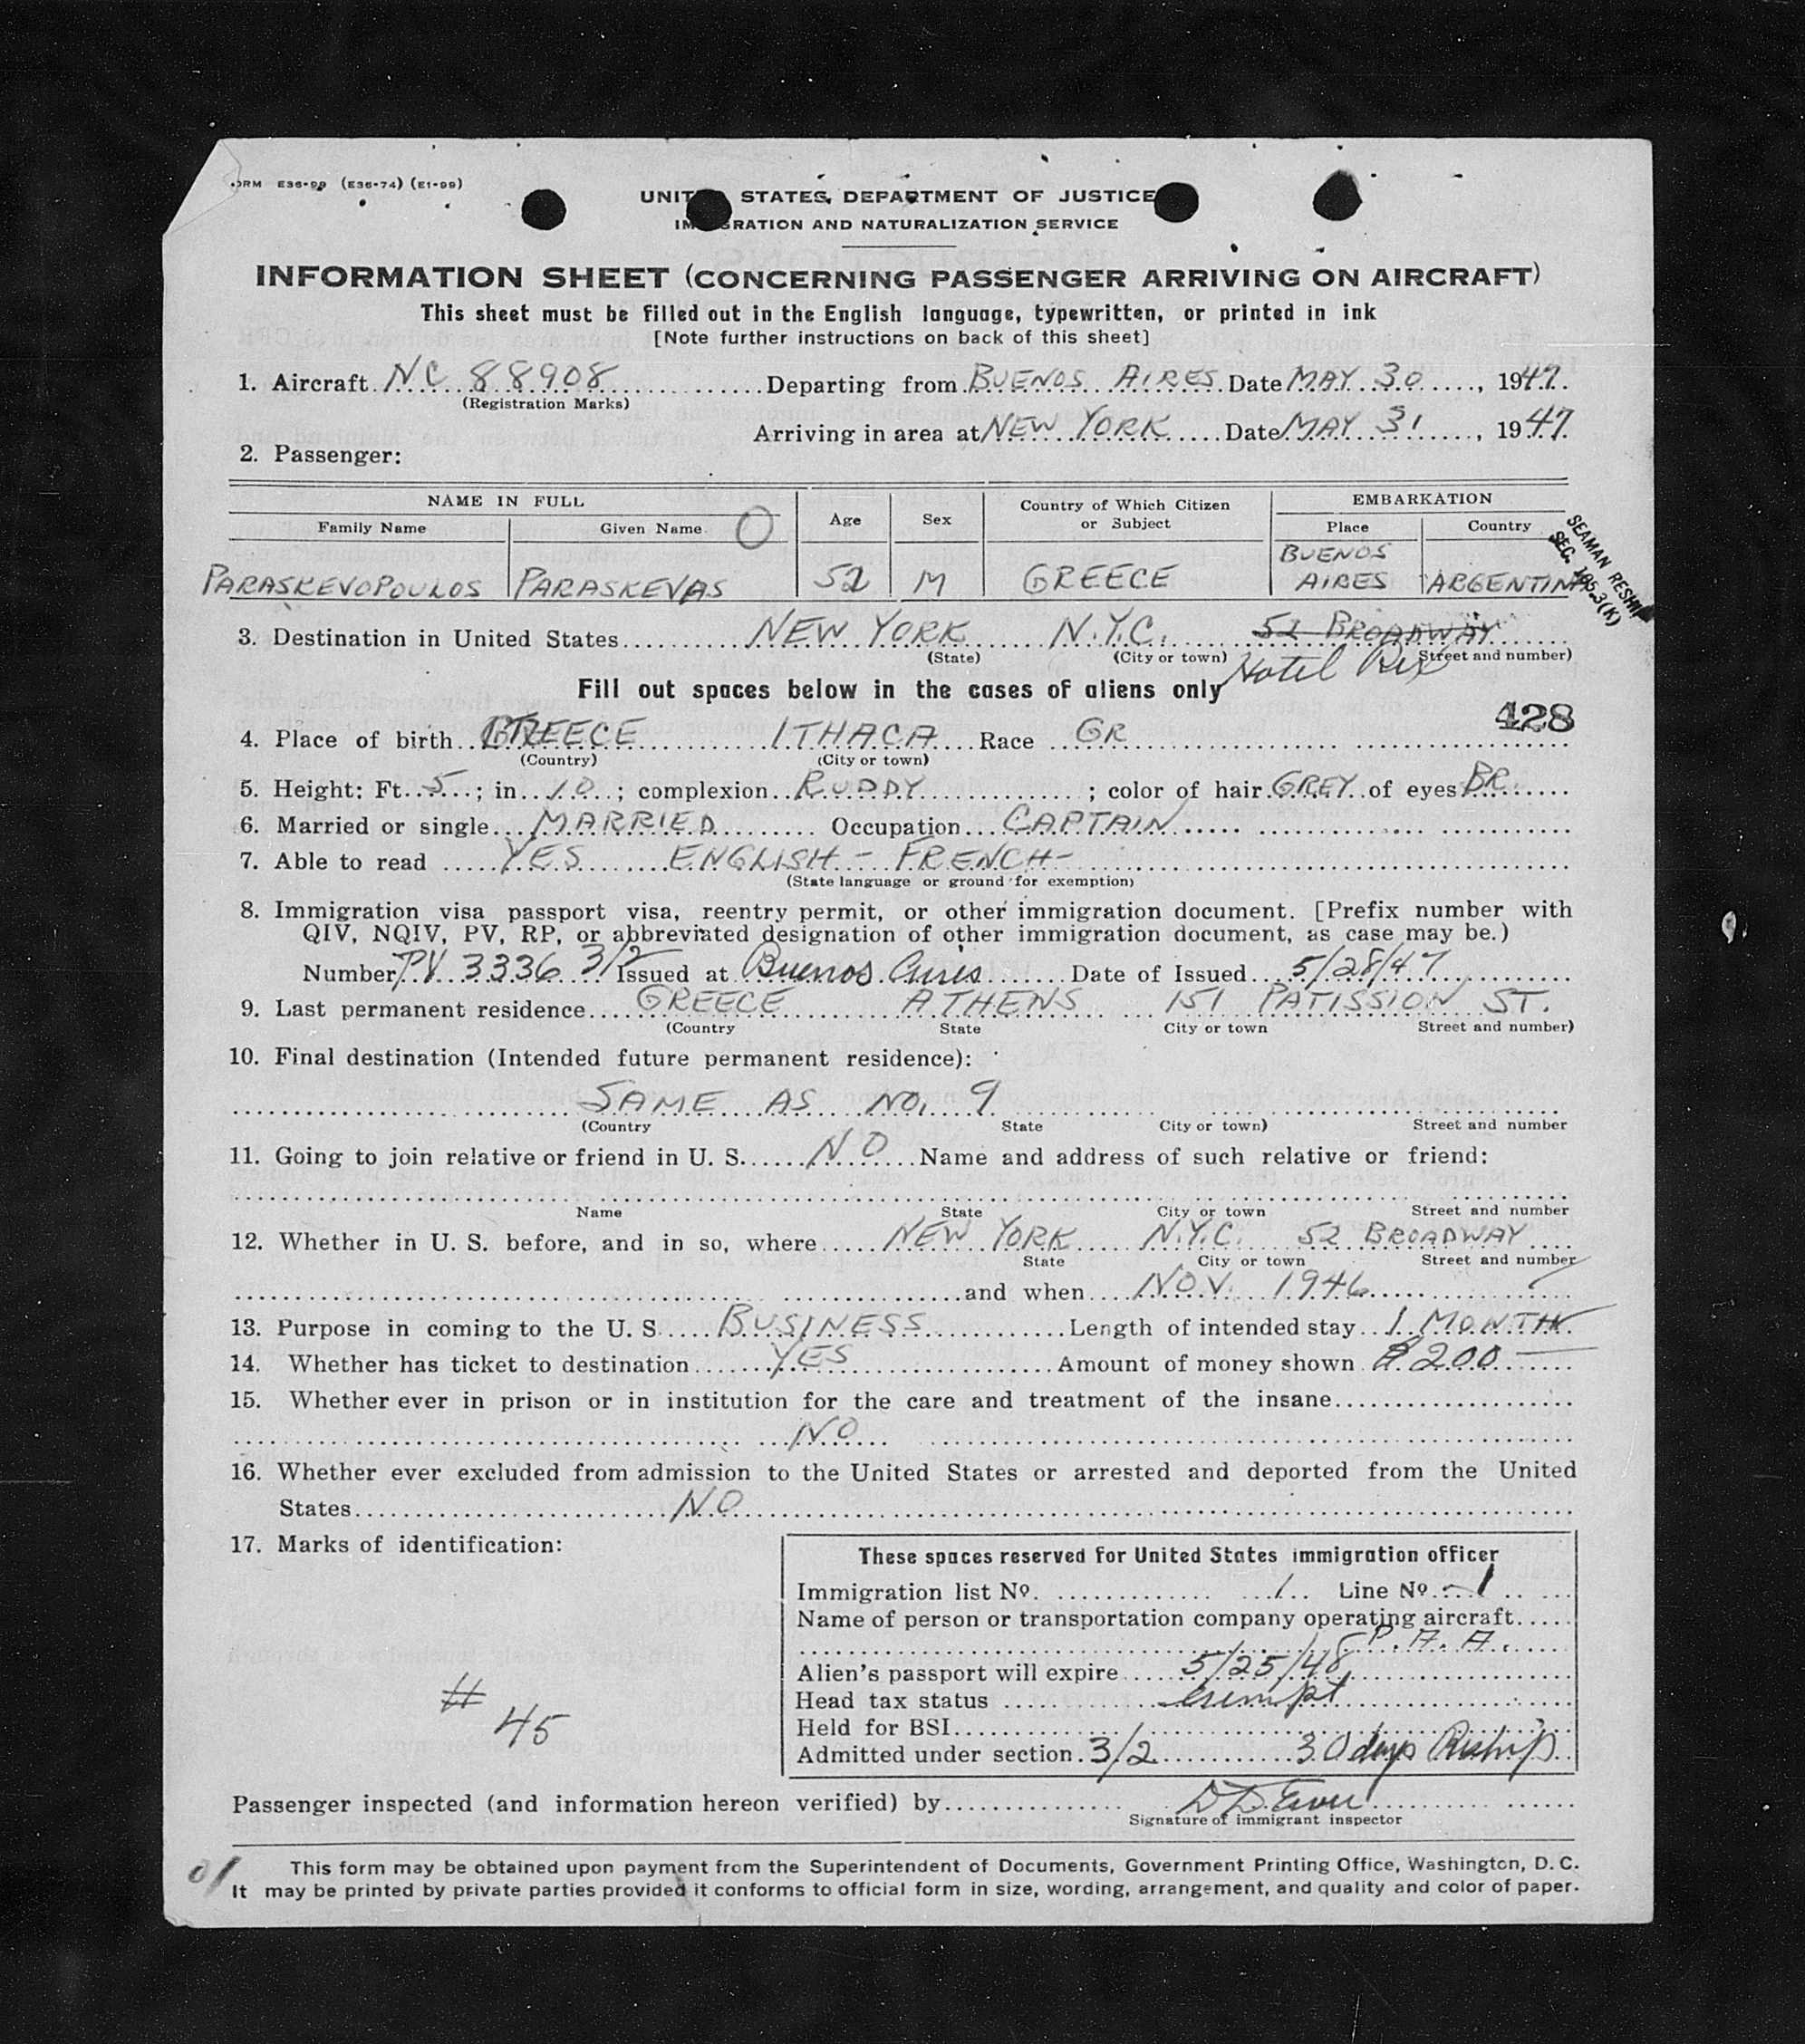 FORM E36-99 (E36-74) (E1-99)
UNITED STATES DEPARTMENT OF JUSTICE
IMMIGRATION AND NATURALIZATION SERVICE
INFORMATION SHEET (CONCERNING PASSENGER ARRIVING ON AIRCRAFT)
This sheet must be filled out in the English language, typewritten, or printed in ink
[Note further instructions on back of this sheet]
1. Aircraft NC 88908 Departing from BUENOS AIRES Date MAY 30, 1947.
(Registration Marks)
Arriving in area at NEW YORK Date MAY 31, 1947.
2. Passenger:
NAME IN FULL Age Sex Country of Which Citizen or Subject EMBARKATION
Family Name Given Name O Place Country
SEAMAN RESHIP
SEC. 105.3(K)
PARASKEVOPOULOS PARASKEVAS 52 M GREECE BUENOS AIRES ARGENTINA
3. Destination in United States NEW YORK N.Y.C. 52 BROADWAY
(State) (City or town) Street and number)
Hotel Rex
Fill out spaces below in the cases of aliens only
428
4. Place of birth GREECE ITHACA Race GR
(Country) (City or town)
5. Height: Ft. 5; in. 10; complexion RUDDY; color of hair GREY of eyes BR.
6. Married or single MARRIED Occupation CAPTAIN
7. Able to read YES ENGLISH - FRENCH -
(State language or ground for exemption)
8. Immigration visa passport visa, reentry permit, or other immigration document. [Prefix number with
QIV, NQIV, PV, RP, or abbreviated designation of other immigration document, as case may be.)
Number PV 3336 3/2 Issued at Buenos Aires Date of Issued 5/28/47
9. Last permanent residence GREECE ATHENS 151 PATISSION ST.
(Country State City or town Street and number)
10. Final destination (Intended future permanent residence):
SAME AS NO. 9
(Country State City or town) Street and number
11. Going to join relative or friend in U. S. NO Name and address of such relative or friend:
Name State City or town Street and number
12. Whether in U. S. before, and in so, where NEW YORK N.Y.C. 52 BROADWAY
State City or town Street and number
and when NOV. 1946
13. Purpose in coming to the U. S. BUSINESS Length of intended stay 1 MONTH
14. Whether has ticket to destination YES Amount of money shown $200 —
15. Whether ever in prison or in institution for the care and treatment of the insane
NO
16. Whether ever excluded from admission to the United States or arrested and deported from the United
States NO
17. Marks of identification:
# 45
These spaces reserved for United States immigration officer
Immigration list No. 1 Line No. 1
Name of person or transportation company operating aircraft
P.A.A.
Alien's passport will expire 5/25/48
Head tax status exempt
Held for BSI
Admitted under section 3/2 30 days Reship
Passenger inspected (and information hereon verified) by
Signature of immigrant inspector
01
This form may be obtained upon payment from the Superintendent of Documents, Government Printing Office, Washington, D. C.
It may be printed by private parties provided it conforms to official form in size, wording, arrangement, and quality and color of paper.